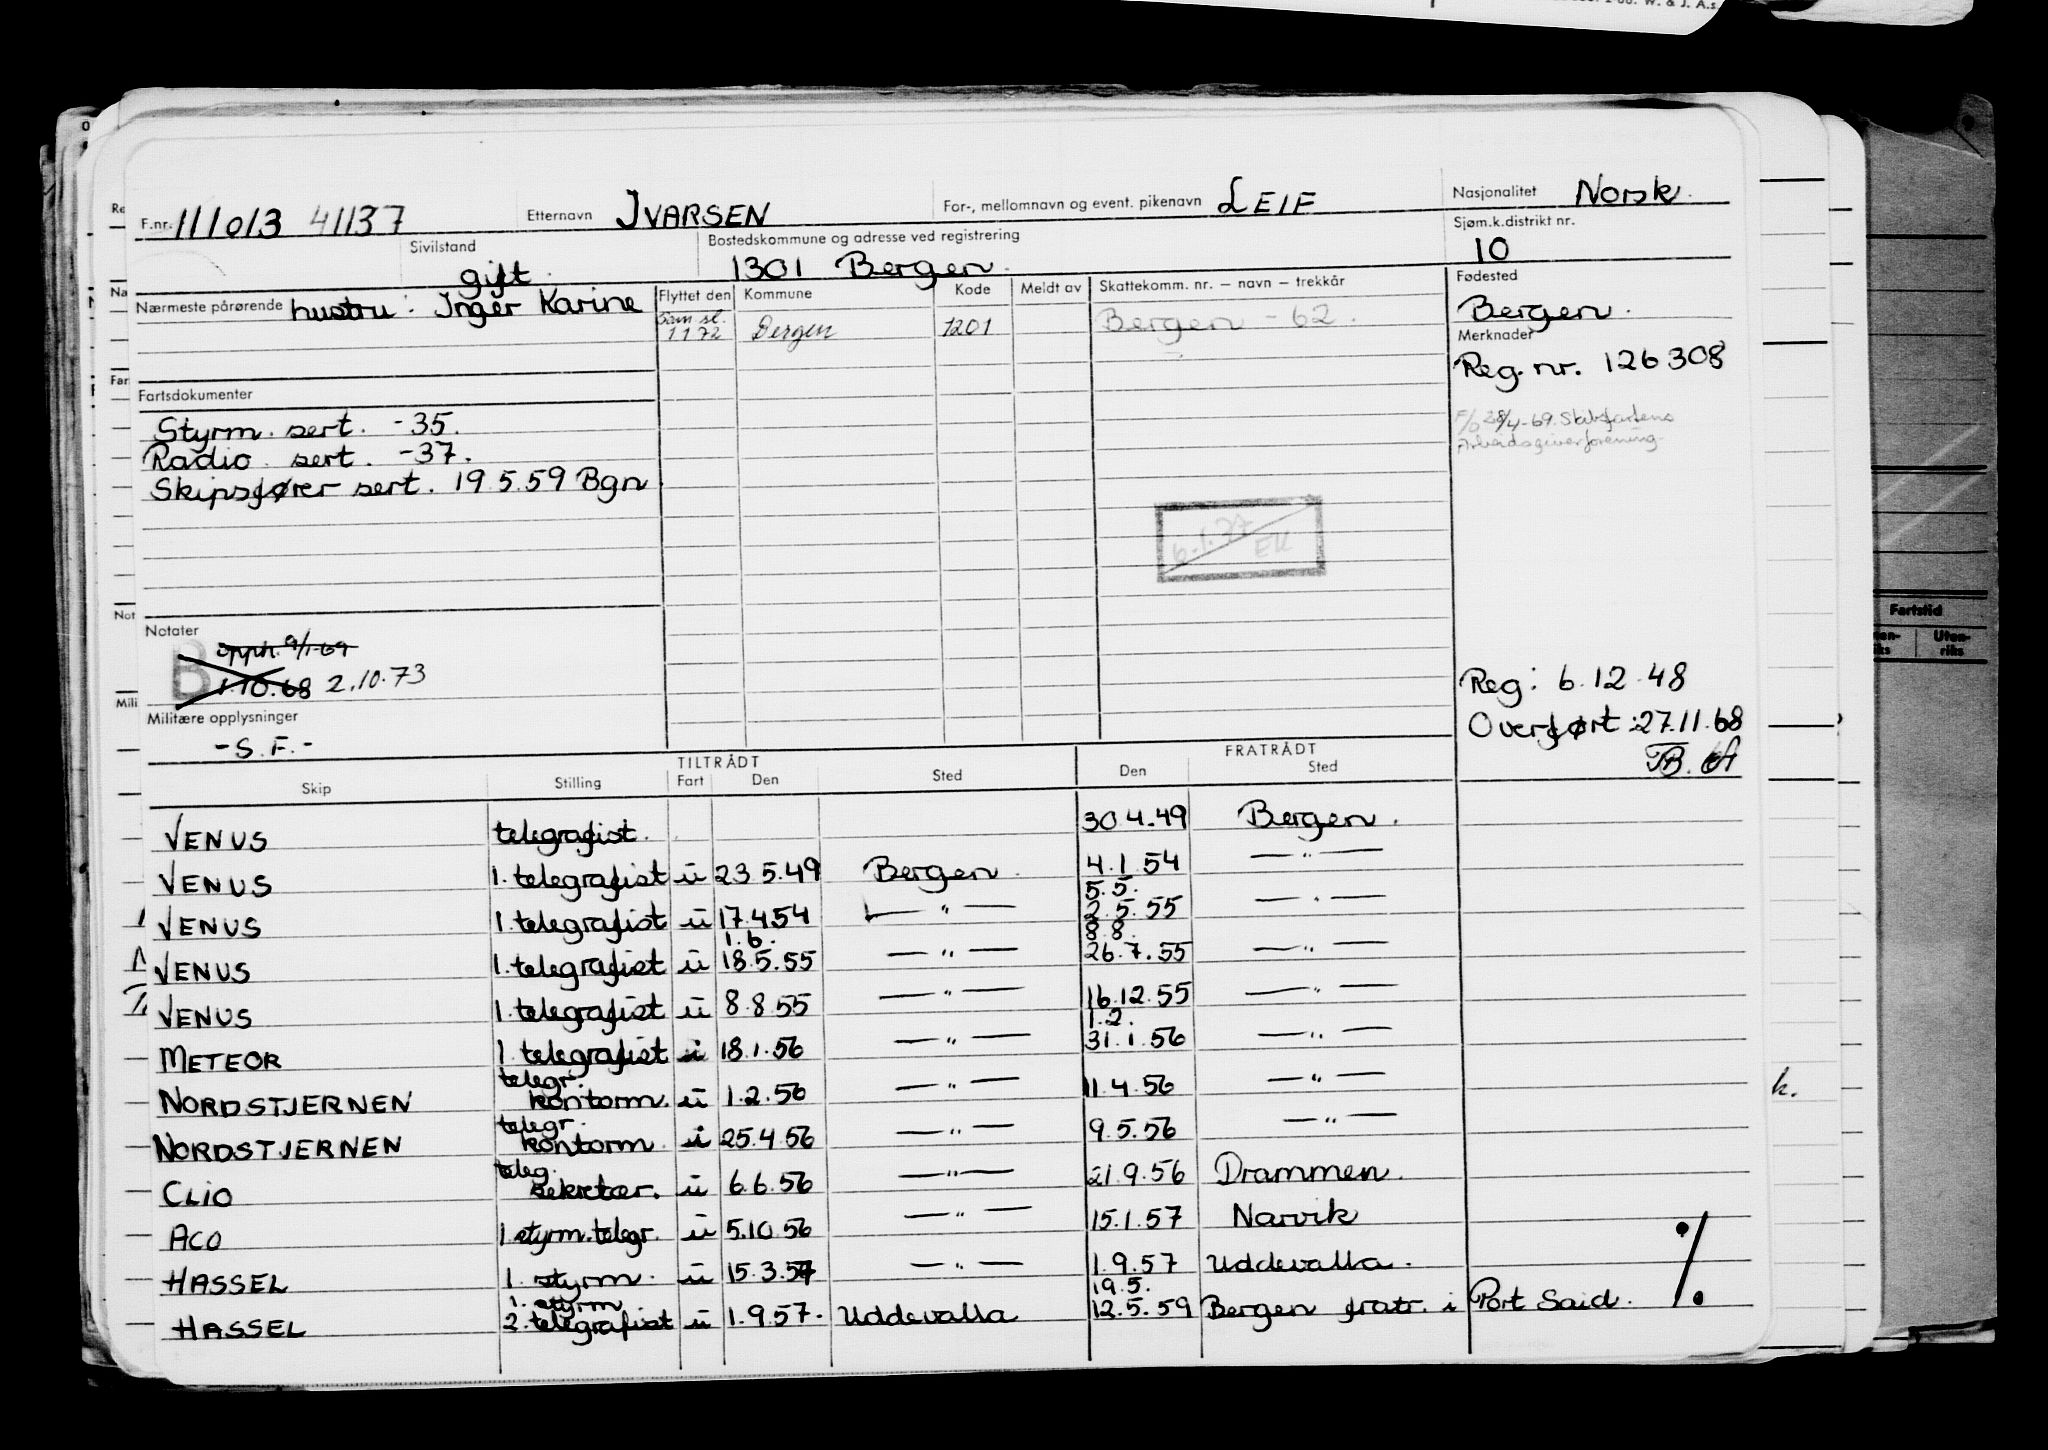 F.nr. 111013 41137 Etternavn IVARSEN For-, mellomnavn og event. pikenavn LEIF Nasjonalitet Norsk.
Sivilstand gift. Bostedskommune og adresse ved registrering 1301 Bergen. Sjøm.k.distrikt nr. 10
Nærmeste pårørende hustru: Inger Karine
Flyttet den Kommune Kode Meldt av Skattekomm. nr. — navn — trekkår
1 1 72 Bergen 1201 Bergen - 62.
Fødested
Bergen.
Merknader
Reg. nr. 126308
28/4-69. Skibsfartens
Arbeidsgiverforening
Fartsdokumenter
Styrm. sert. -35.
Radio sert. -37.
Skipsfører sert. 19.5.59 Bgn
6.1.77
EK
Notater
B
opph. 9/1-69
1.10.68 2.10.73
Militære opplysninger
-S.F.-
Reg: 6.12.48
Overført: 27.11.68
TILTRÅDT FRATRÅDT
Skip Stilling Fart Den Sted Den Sted
VENUS telegrafist. 30.4.49 Bergen.
VENUS 1. telegrafist u 23.5.49 Bergen. 4.1.54 — " —
5.5.
VENUS 1. telegrafist u 17.4.54 — " — 2.5.55 — " —
1.6. 8.8.
VENUS 1. telegrafist u 18.5.55 — " — 26.7.55 — " —
VENUS 1. telegrafist u 8.8.55 — " — 16.12.55 — " —
1.2.
METEOR 1. telegrafist i 18.1.56 — " — 31.1.56 — " —
telegr.
NORDSTJERNEN kontorm. u 1.2.56 — " — 11.4.56 — " —
telegr.
NORDSTJERNEN kontorm. i 25.4.56 — " — 9.5.56 — " —
teleg.
CLIO sekretær. u 6.6.56 — " — 21.9.56 Drammen.
ACO 1 styrm. telegr. u 5.10.56 — " — 15.1.57 Narvik
HASSEL 1. styrm. u 15.3.57 — " — 1.9.57 Uddevalla.
1. styrm 19.5.
HASSEL 2. telegrafist u 1.9.57. Uddevalla 12.5.59 Bergen fratr. i Port Said.
%
Fartstid
Uten-
riks
h.